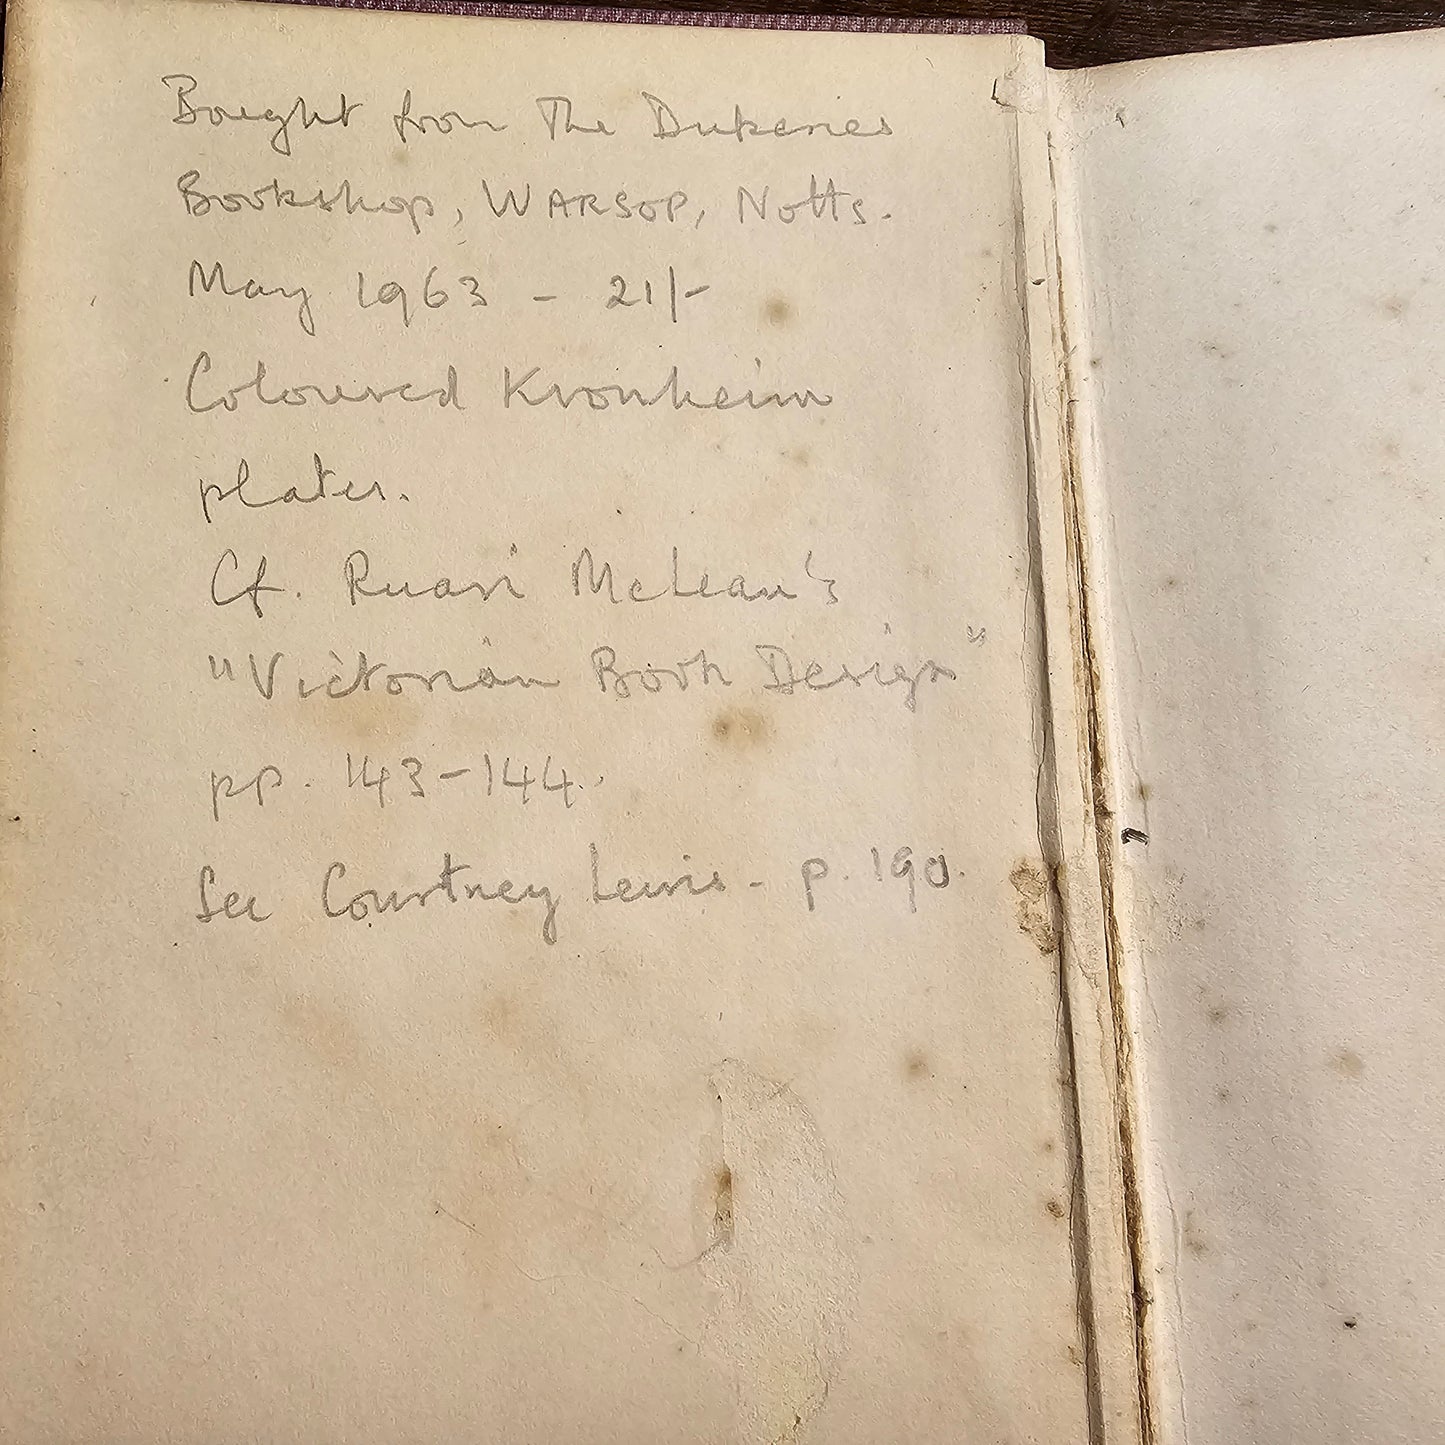 Bought from The Dukeries
Bookshop, WARSOP, Notts.
May 1963 - 21/-
Coloured Kronheim
plates.
Cf. Ruari McLean's
"Victorian Book Design"
pp. 143-144.
See Courtney Lewis - p. 190.